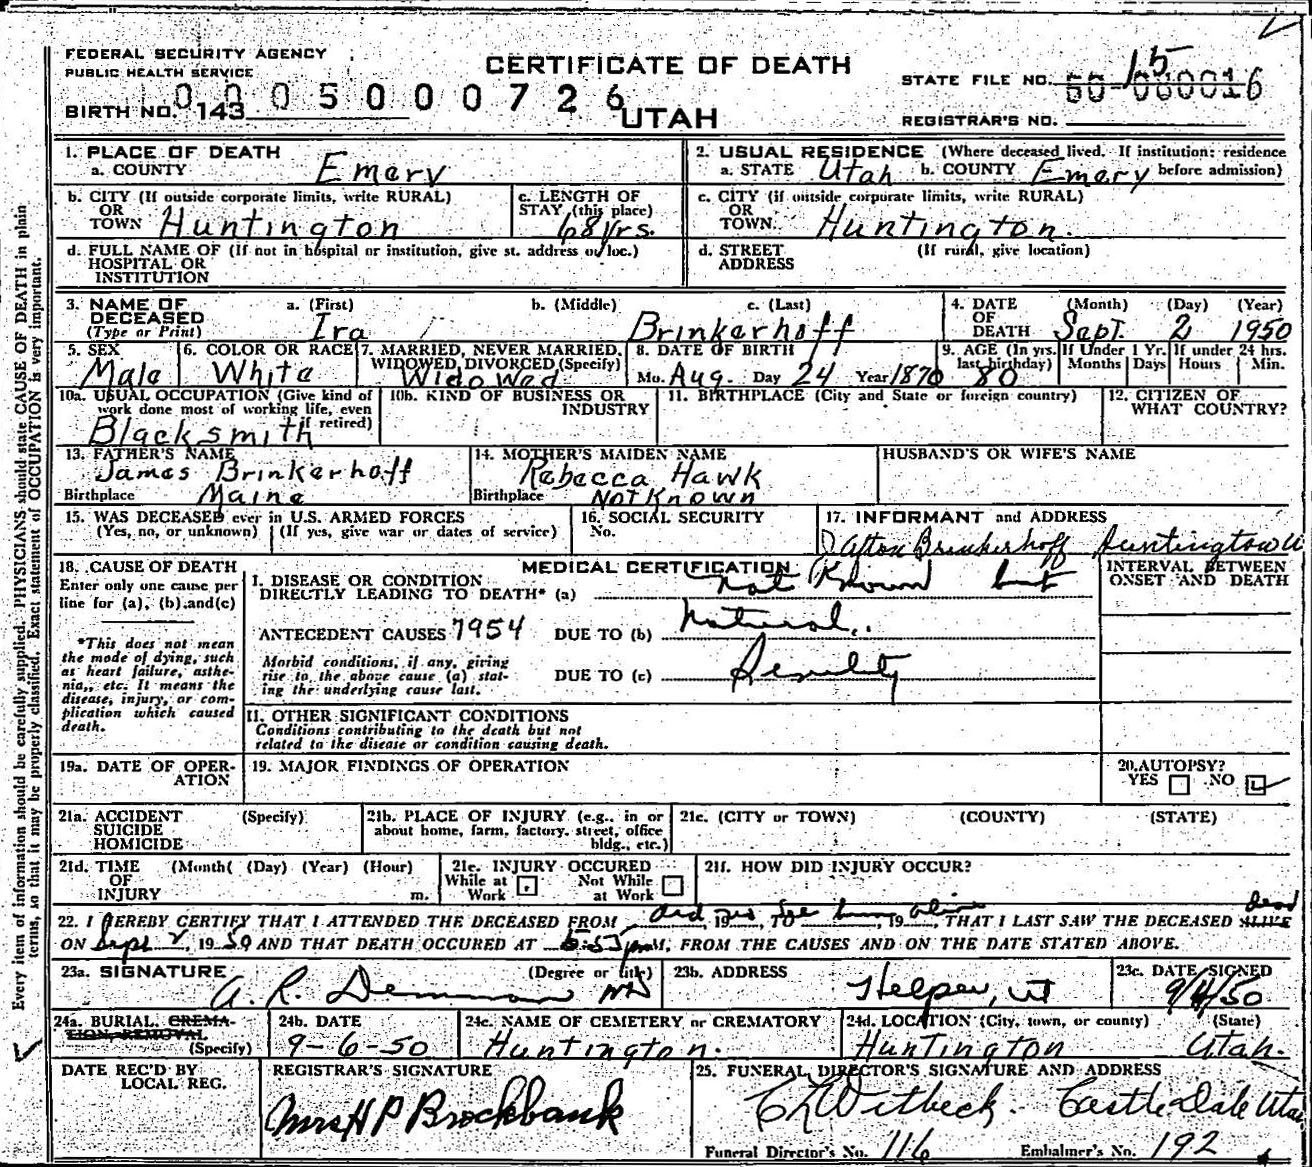 FEDERAL SECURITY AGENCY
PUBLIC HEALTH SERVICE
CERTIFICATE OF DEATH
STATE FILE NO. 15
0005000726
BIRTH NO. 143
UTAH
REGISTRAR'S NO.
1. PLACE OF DEATH
a. COUNTY Emery
2. USUAL RESIDENCE (Where deceased lived. If institution: residence before admission)
a. STATE Utah b. COUNTY Emery
b. CITY (If outside corporate limits, write RURAL)
OR
TOWN Huntington
c. LENGTH OF
STAY (this place)
68 yrs.
c. CITY (if outside corporate limits, write RURAL)
OR
TOWN. Huntington.
d. FULL NAME OF (If not in hospital or institution, give st. address or loc.)
HOSPITAL OR
INSTITUTION
d. STREET (If rural, give location)
ADDRESS
3. NAME OF
DECEASED
(Type or Print)
a. (First) b. (Middle) c. (Last)
Ira Brinkerhoff
4. DATE (Month) (Day) (Year)
OF
DEATH Sept. 2 1950
5. SEX
Male
6. COLOR OR RACE
White
7. MARRIED, NEVER MARRIED,
WIDOWED, DIVORCED (Specify)
Widowed
8. DATE OF BIRTH
Mo. Aug. Day 24 Year 1870
9. AGE (In yrs.
last birthday)
80
If Under 1 Yr.
Months Days
If under 24 hrs.
Hours Min.
10a. USUAL OCCUPATION (Give kind of
work done most of working life, even
if retired)
Blacksmith
10b. KIND OF BUSINESS OR
INDUSTRY
11. BIRTHPLACE (City and State or foreign country)
12. CITIZEN OF
WHAT COUNTRY?
13. FATHER'S NAME
James Brinkerhoff
Birthplace Maine
14. MOTHER'S MAIDEN NAME
Rebecca Hawk
Birthplace Not Known
HUSBAND'S OR WIFE'S NAME
15. WAS DECEASED ever in U.S. ARMED FORCES
(Yes, no, or unknown) (If yes, give war or dates of service)
16. SOCIAL SECURITY
No.
17. INFORMANT and ADDRESS
Afton Brinkerhoff Huntington U
18. CAUSE OF DEATH
Enter only one cause per
line for (a), (b) and (c)
*This does not mean
the mode of dying, such
as heart failure, asthe-
nia,, etc. It means the
disease, injury, or com-
plication which caused
death.
MEDICAL CERTIFICATION
I. DISEASE OR CONDITION
DIRECTLY LEADING TO DEATH* (a) not Known but
ANTECEDENT CAUSES 7954 DUE TO (b) natural.
Morbid conditions, if any, giving
rise to the above cause (a) stat-
ing the underlying cause last.
DUE TO (c) Senility
INTERVAL BETWEEN
ONSET AND DEATH
II. OTHER SIGNIFICANT CONDITIONS
Conditions contributing to the death but not
related to the disease or condition causing death.
19a. DATE OF OPER-
ATION
19. MAJOR FINDINGS OF OPERATION
20. AUTOPSY?
YES NO
21a. ACCIDENT (Specify)
SUICIDE
HOMICIDE
21b. PLACE OF INJURY (e.g., in or
about home, farm, factory, street, office
bldg., etc.)
21c. (CITY or TOWN) (COUNTY) (STATE)
21d. TIME (Month( (Day) (Year) (Hour)
OF
INJURY m.
21e. INJURY OCCURED
While at Work Not While at Work
21f. HOW DID INJURY OCCUR?
22. I HEREBY CERTIFY THAT I ATTENDED THE DECEASED FROM did not see him, 19, TO alive, 19, THAT I LAST SAW THE DECEASED ALIVE dead
ON Sept 2, 1950 AND THAT DEATH OCCURED AT m., FROM THE CAUSES AND ON THE DATE STATED ABOVE.
23a. SIGNATURE (Degree or title)
A. R. Demman MD
23b. ADDRESS
Helper, Ut
23c. DATE SIGNED
9/4/50
24a. BURIAL, CREMA-
TION, REMOVAL
(Specify)
24b. DATE
9-6-50
24c. NAME OF CEMETERY or CREMATORY
Huntington.
24d. LOCATION (City, town, or county) (State)
Huntington Utah.
DATE REC'D BY
LOCAL REG.
REGISTRAR'S SIGNATURE
Mrs H P Brockbank
25. FUNERAL DIRECTOR'S SIGNATURE AND ADDRESS
C L Witbeck. Castle Dale Utah
Funeral Director's No. 116 Embalmer's No. 192
Every item of information should be carefully supplied. PHYSICIANS should state CAUSE OF DEATH in plain
terms, so that it may be properly classified. Exact statement of OCCUPATION is very important.